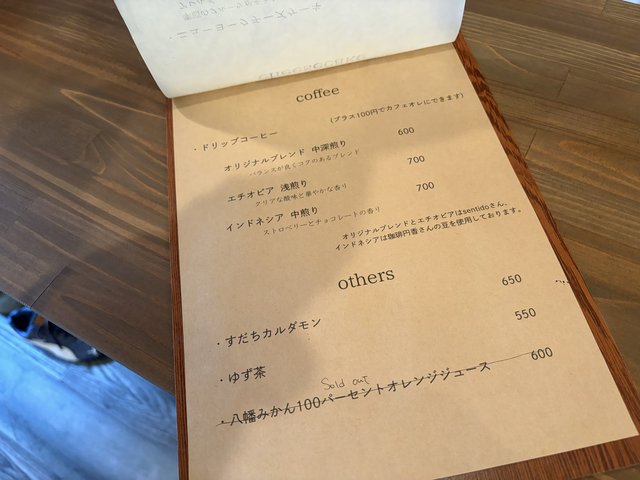 coffee
・ドリップコーヒー (プラス100円でカフェオレにできます)
オリジナルブレンド 中深煎り 600
バランスが良くコクのあるブレンド
エチオピア 浅煎り 700
クリアな酸味と華やかな香り
インドネシア 中煎り 700
ストロベリーとチョコレートの香り
オリジナルブレンドとエチオピアはsentidoさん、
インドネシアは珈琲円香さんの豆を使用しております。
others
・すだちカルダモン 650
・ゆず茶 550
Sold out
・八幡みかん100パーセントオレンジジュース 600